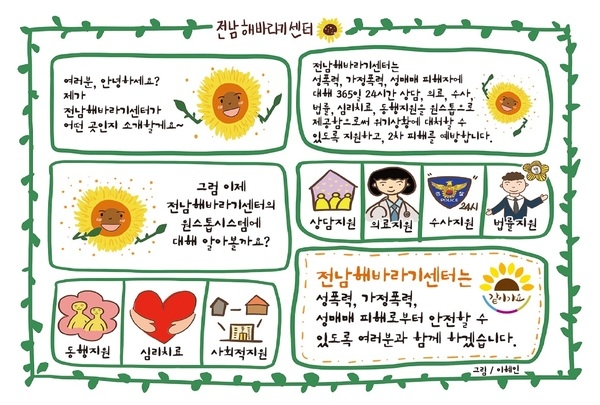 전남해바라기센터
여러분, 안녕하세요?
제가
전남해바라기센터가
어떤 곳인지 소개할게요~
전남해바라기센터는
성폭력, 가정폭력, 성매매 피해자에
대해 365일 24시간 상담, 의료, 수사,
법률, 심리치료, 동행지원을 원스톱으로
제공함으로써 위기상황에 대처할 수
있도록 지원하고, 2차 피해를 예방합니다.
그럼 이제
전남해바라기센터의
원스톱시스템에
대해 알아볼까요?
상담지원
의료지원
경찰
POLICE
24시
수사지원
법률지원
동행지원
심리치료
사회적지원
전남해바라기센터는
성폭력, 가정폭력,
성매매 피해로부터 안전할 수
있도록 여러분과 함께 하겠습니다.
같이가요
그림 / 이혜인